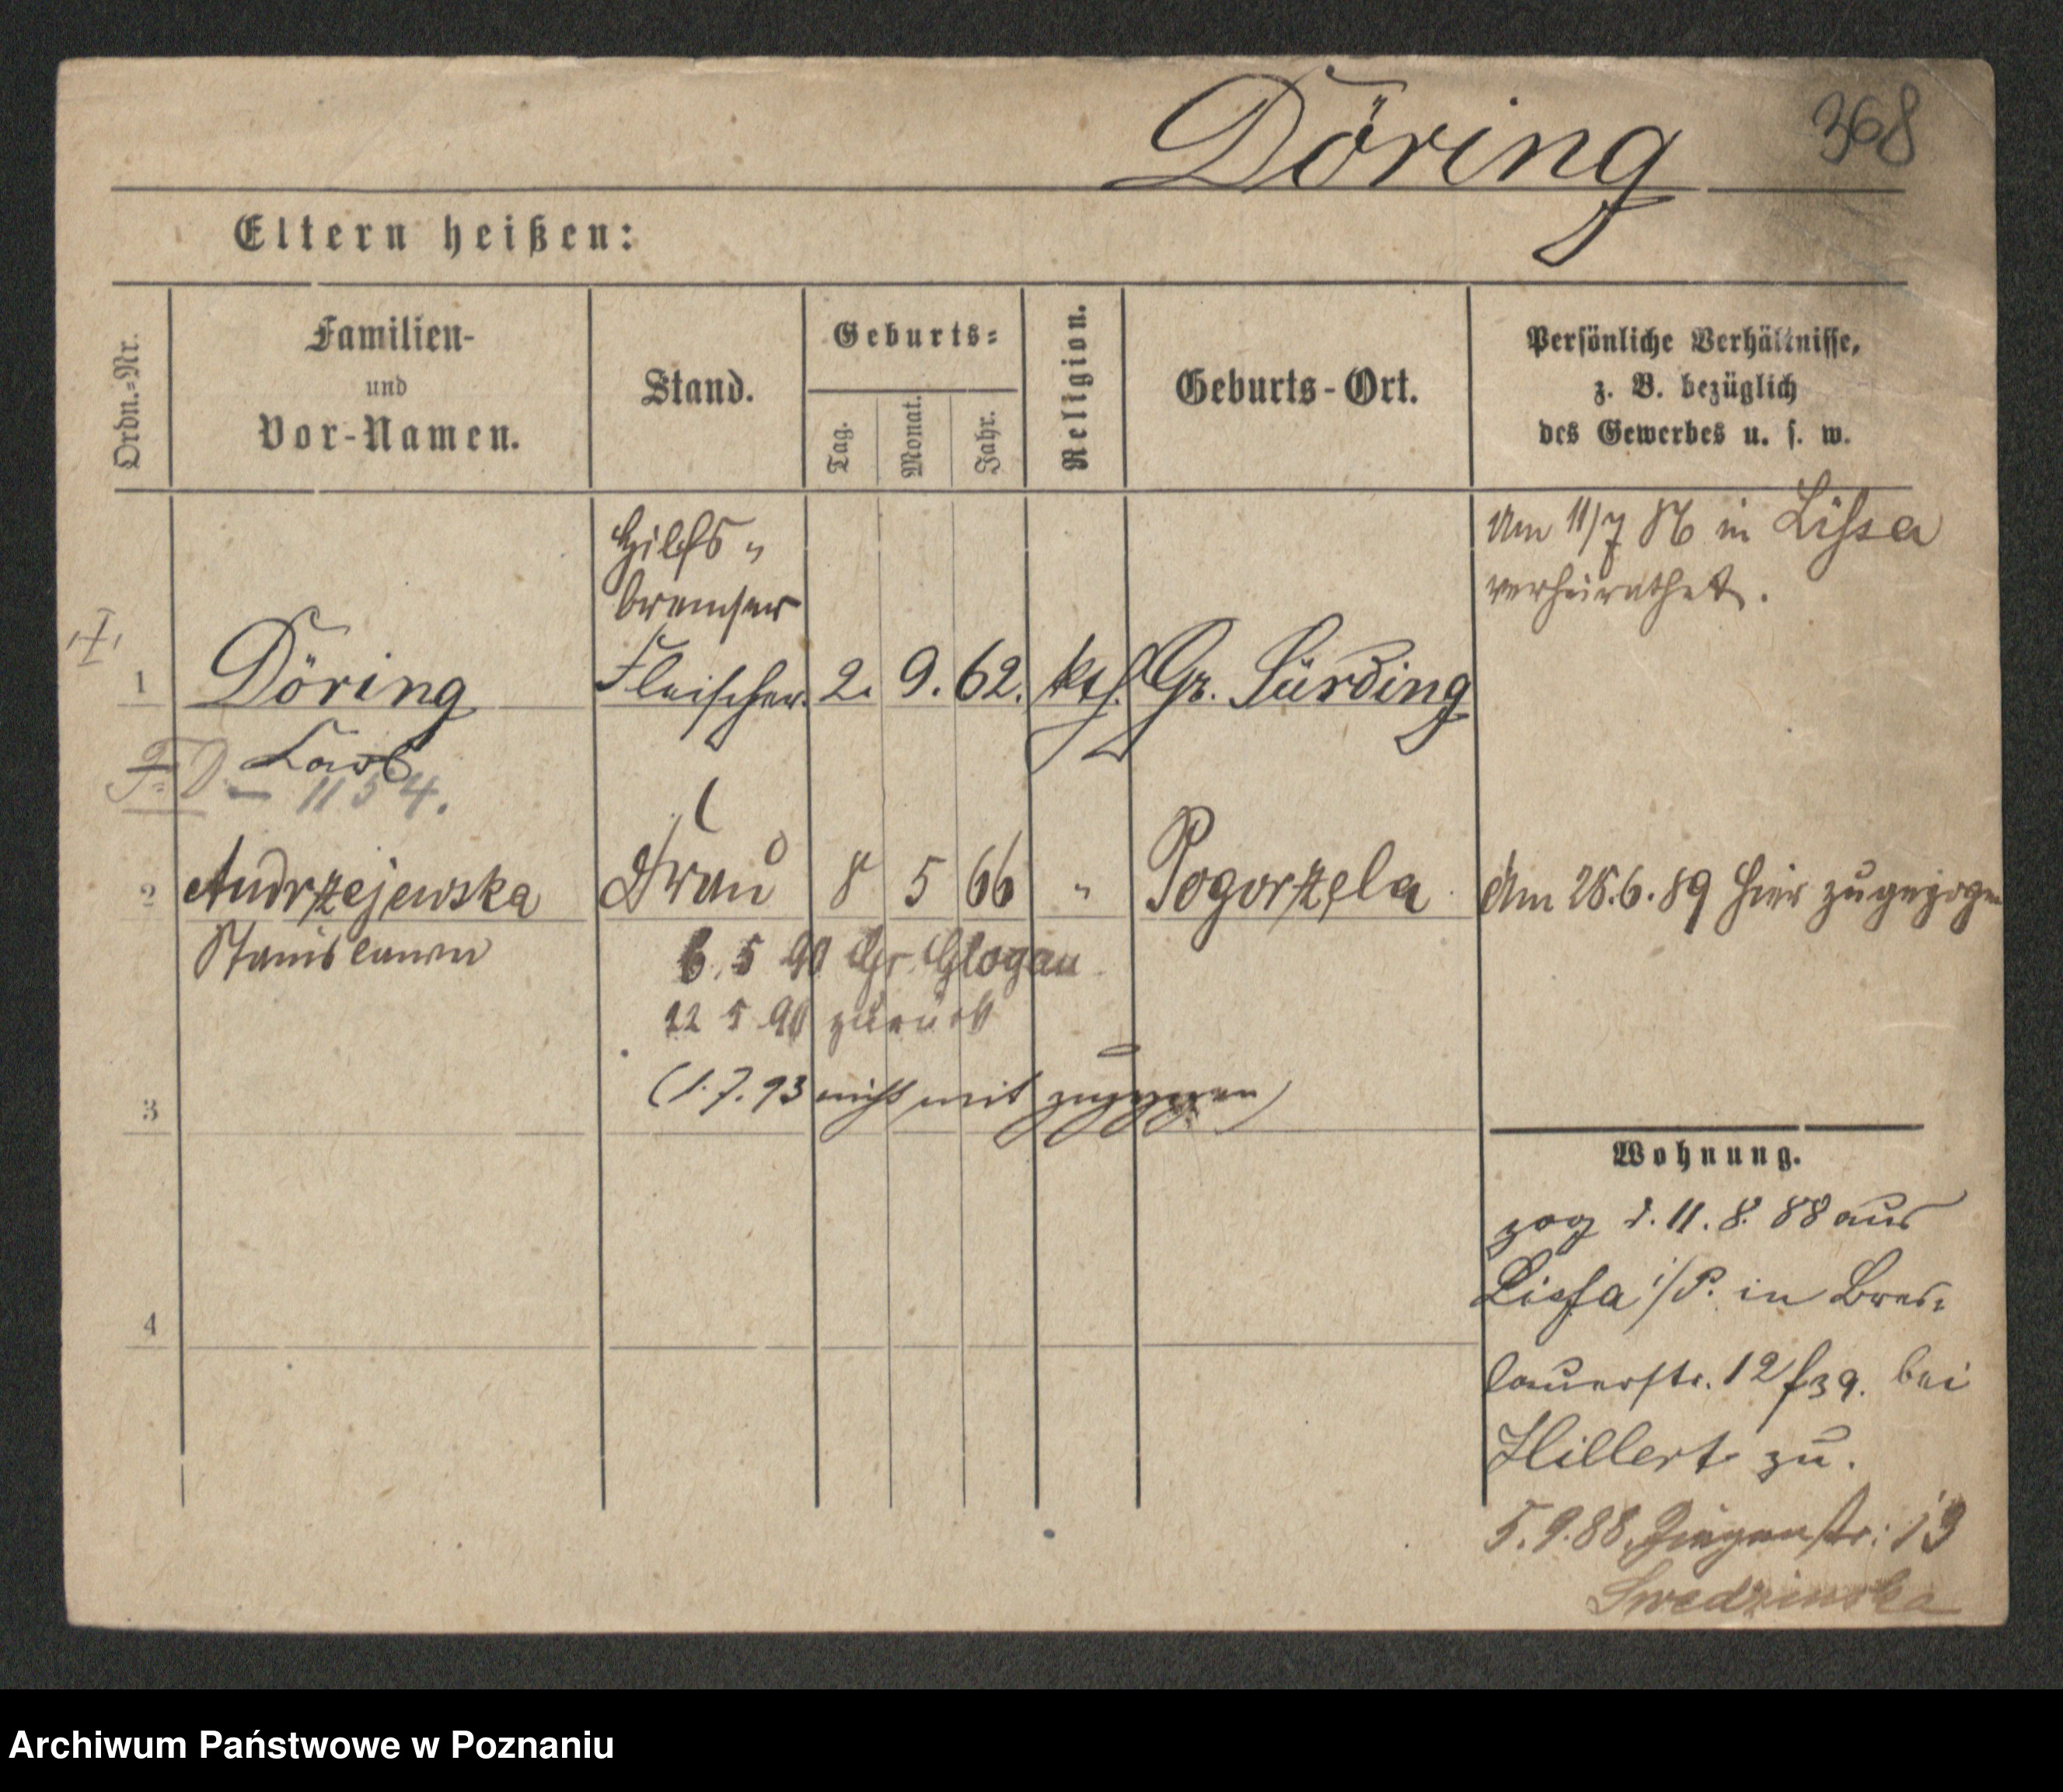 Döring 368
Eltern heißen:
Ordn.-Nr.
Familien-
und
Vor-Namen.
Stand.
Geburts-
Tag.
Monat.
Jahr.
Religion.
Geburts-Ort.
Persönliche Verhältnisse,
z. B. bezüglich
des Gewerbes u. s. w.
Hilfs-
bremser
Am 11/7 86 in Lissa
verheirathet.
1 Döring Fleischer. 2. 9. 62. kth. Gr. Sürding
Carl
F. D. - 1154.
2 Andrzejewska Frau 8 5 66 " Pogorzela Am 28.6.89 hier zugezogen
Stanislawa
6. 5 90 Gr. Glogau
12 5 90 zurück
(1.7.93 nicht mit zugezogen)
3
4
Wohnung.
zog d. 11. 8. 88 aus
Lissa i/P. in Bres-
lauerstr. 12/39. bei
Hillert zu.
5.9.88. Ziegenstr. 19
Swedzinska
Archiwum Państwowe w Poznaniu